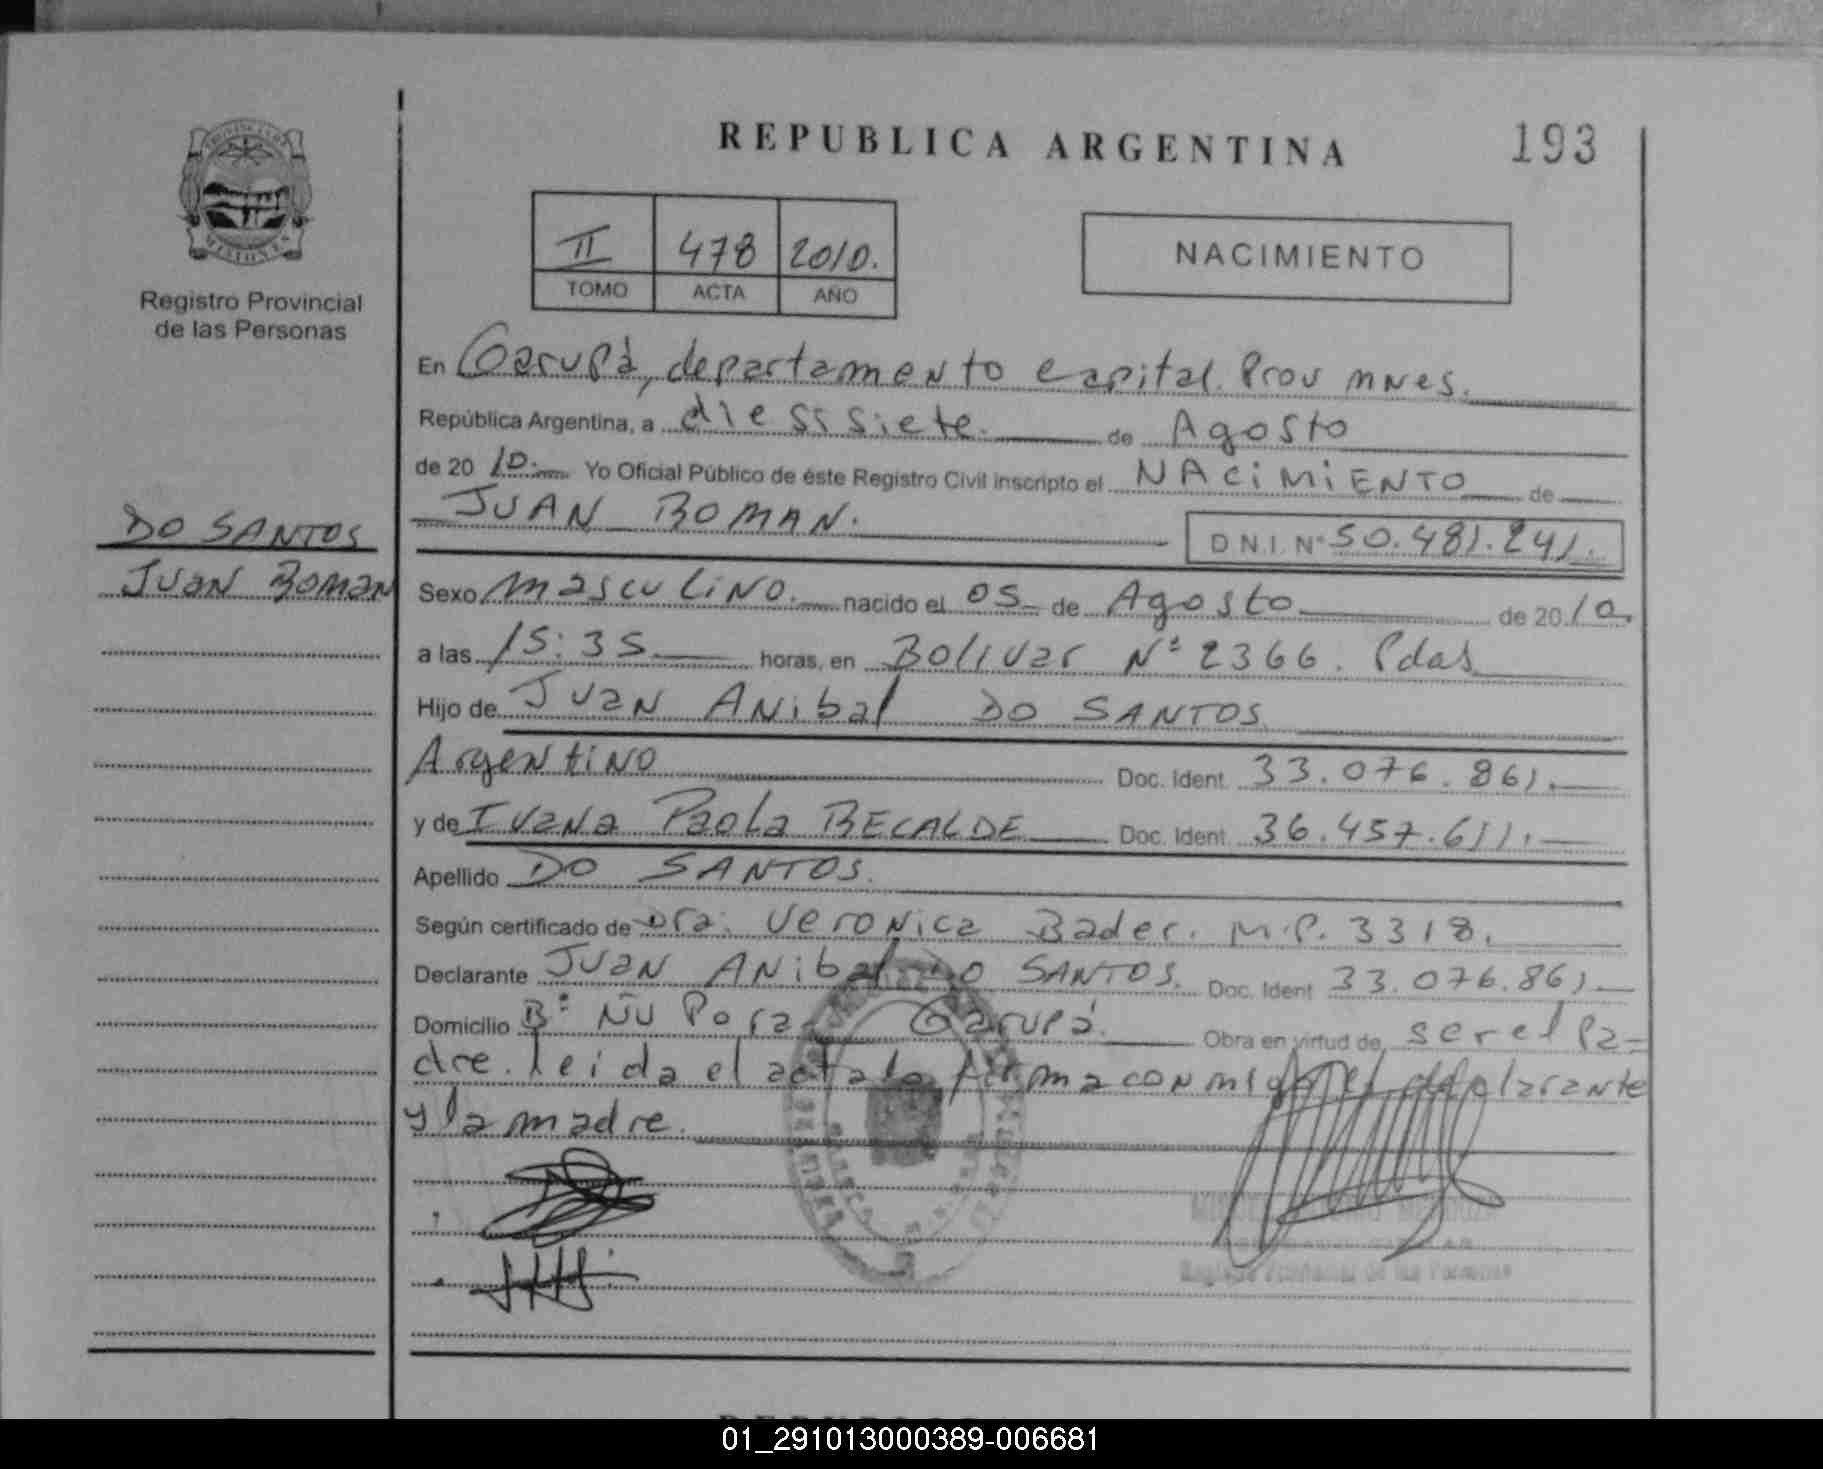 REPUBLICA ARGENTINA
193
PROVINCIA DE
MISIONES
Registro Provincial
de las Personas
II 478 2010.
TOMO ACTA AÑO
NACIMIENTO
En Garupá, departamento capital. Prov mnes.
República Argentina, a diessisiete. de Agosto
de 2010. Yo Oficial Público de éste Registro Civil inscripto el NACIMIENTO de
JUAN ROMAN.
D.N.I. Nº 50.481.241.
DO SANTOS
Juan Roman
Sexo masculino. nacido el 05 de Agosto de 2010.
a las 15:35 horas, en Bolivar Nº 2366. Pdas
Hijo de Juan Anibal DO SANTOS
Argentino Doc. Ident. 33.076.861.
y de Ivana Paola RECALDE Doc. Ident. 36.457.611.
Apellido DO SANTOS.
Según certificado de Dra. Veronica Bader. M.P. 3318.
Declarante Juan Anibal DO SANTOS. Doc. Ident 33.076.861
Domicilio Bº Ñu Pora Garupá. Obra en virtud de ser el pa-
dre. leida el acta la firma conmigo el declarante
y la madre.
Registro Provincial de las Personas
01_291013000389-006681